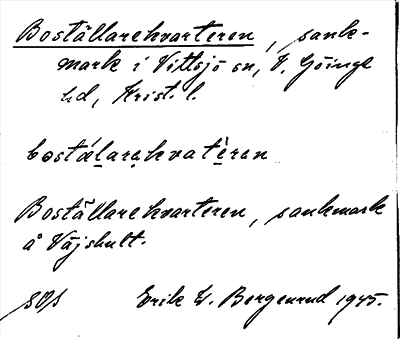 Boställarekvarteren, sank-
mark i Vittsjö sn, V. Göinge
hd, Krist. l.
bostälarekvatèren
Boställarekvarteren, sankmark
å Väjshult.
Erik W. Bergenrud 1945.